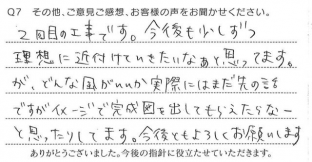 Q7 その他、ご意見ご感想、お客様の声をお聞かせください。
2回目の工事です。今後も少しずつ
理想に近付けていきたいなぁと思ってます。
が、どんな風がいいか実際にはまだ先の話
ですがイメージで完成図を出してもらえたらなー
と思ったりしてます。今後ともよろしくお願いします
ありがとうございました。今後の指針に役立たせていただきます。